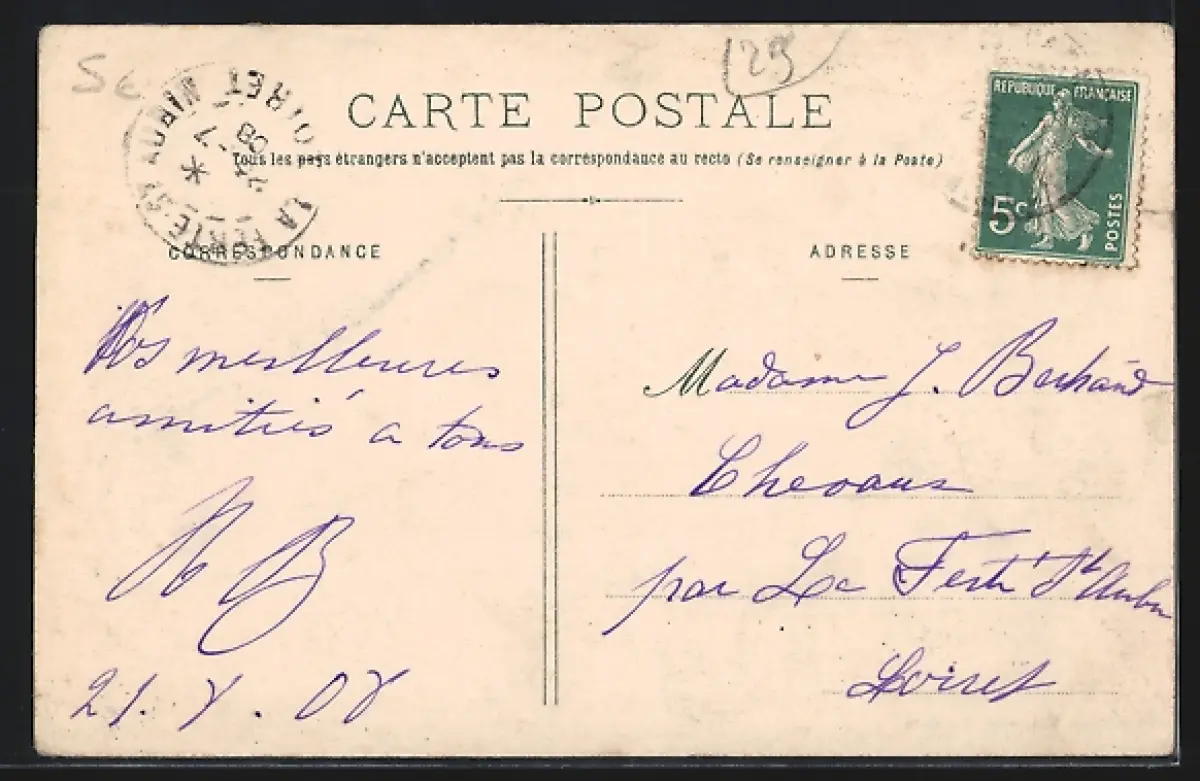 Se
129
CARTE POSTALE
Tous les pays étrangers n'acceptent pas la correspondance au recto (Se renseigner à la Poste)
LA FERTE-ST AUBIN
LOIRET
7
08
REPUBLIQUE FRANÇAISE
5c
POSTES
CORRESPONDANCE
meilleures
amitiés a tous
21.7.08
ADRESSE
Madame J.
par La Ferté St Aubin
Loiret